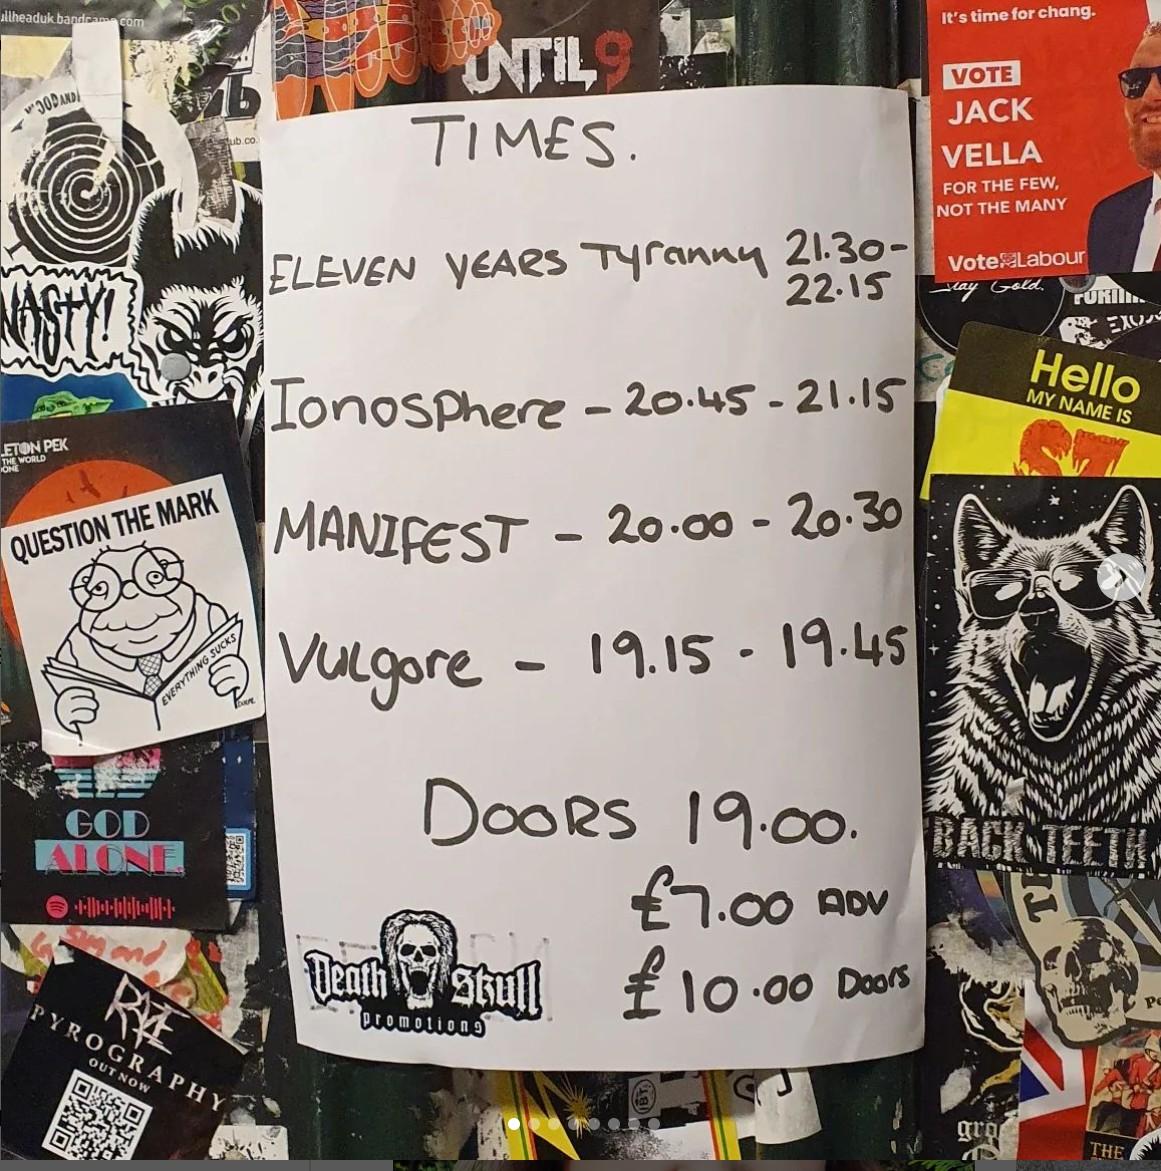 ullheaduk.bandcamp.com
UNTIL 9
It's time for chang.
VOTE
JACK
VELLA
FOR THE FEW,
NOT THE MANY
Vote Labour
TIMES.
ELEVEN YEARS Tyranny 21.30-
22.15
Ionosphere - 20.45 - 21.15
MANIFEST - 20.00 - 20.30
Vulgore - 19.15 - 19.45
DOORS 19.00.
£7.00 ADV
£10.00 Doors
Death Skull
promotions
NASTY!
Stay Gold.
Hello
MY NAME IS
LETON PEK
THE WORLD
ONE
QUESTION THE MARK
EVERYTHING SUCKS
GOD
ALONE.
BACK TEETH
PYROGRAPHY
OUT NOW
THE